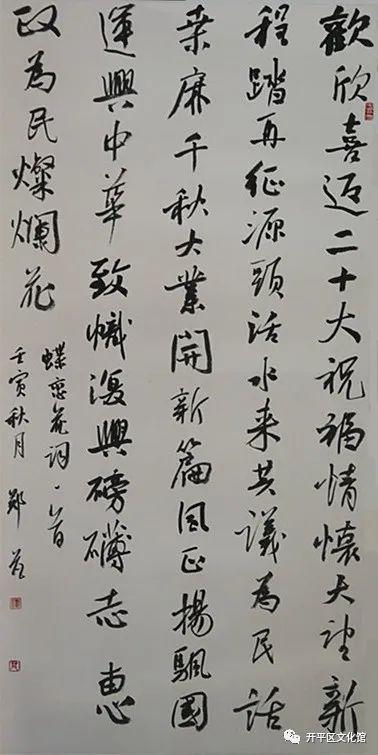 歡欣喜迎二十大祝福情懷望新
程踏再征源頭活水来共議為民話
桑麻千秋大業開新篇風正揚颿國
運興中華致幟復興磅礴志惠
政為民燦爛花
蝶恋花词一首
壬寅秋月 鄭
开平区文化馆